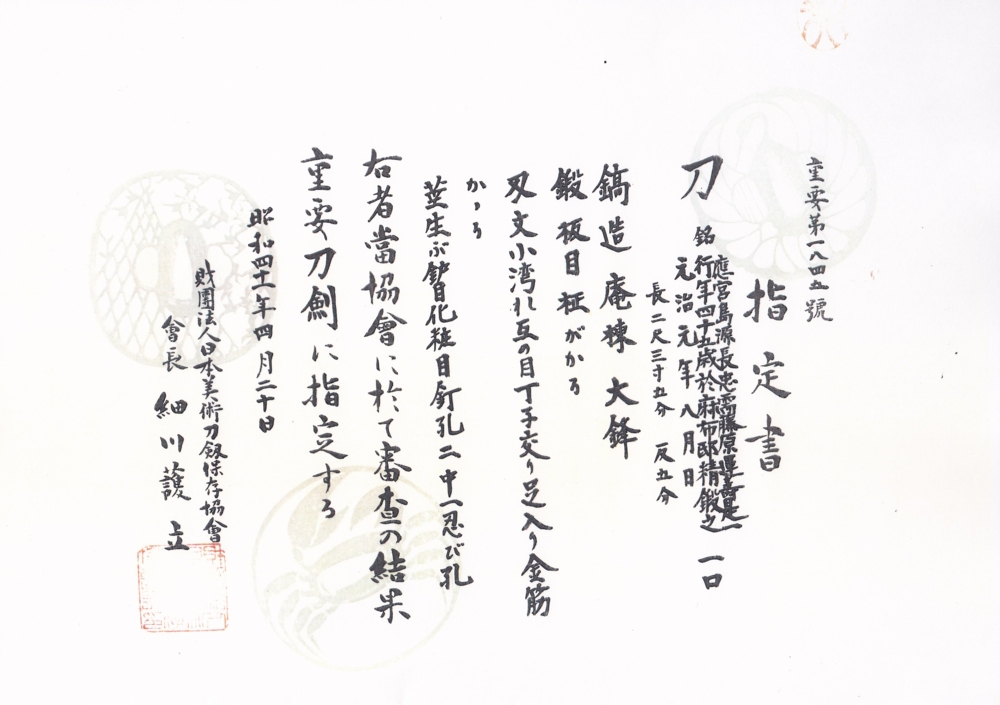 重要第一八四五號
指定書
刀 銘 應宮島源長忠需藤原運壽是一
行年四十五歳於麻布邸精鍛之 一口
元治元年八月日
長二尺三寸五分 反五分
鎬造 庵棟 大鋒
鍛 板目 柾がかる
刃文小湾れ互の目丁子交り足入り金筋
かゝる
茎生ぶ鑢化粧目釘孔二中一忍び孔
右者當協會に於て審査の結果
重要刀劍に指定する
昭和四十一年四月二十日
財團法人日本美術刀剱保存協會
會長 細川護立